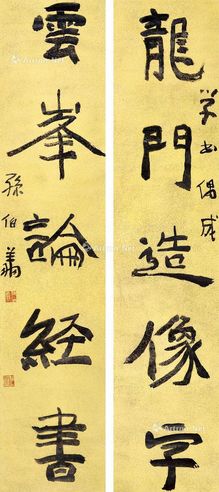 学书偶成
龍門造像字
雲峯論經書
孫伯翔